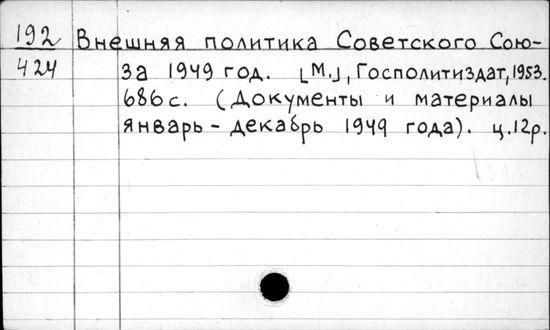 192 Внешняя политика Советского Сою-
424 за 1949 год. [М.], Госполитиздат, 1953.
686 с. (Документы и материалы
январь - декабрь 1949 года). ц. 12 р.